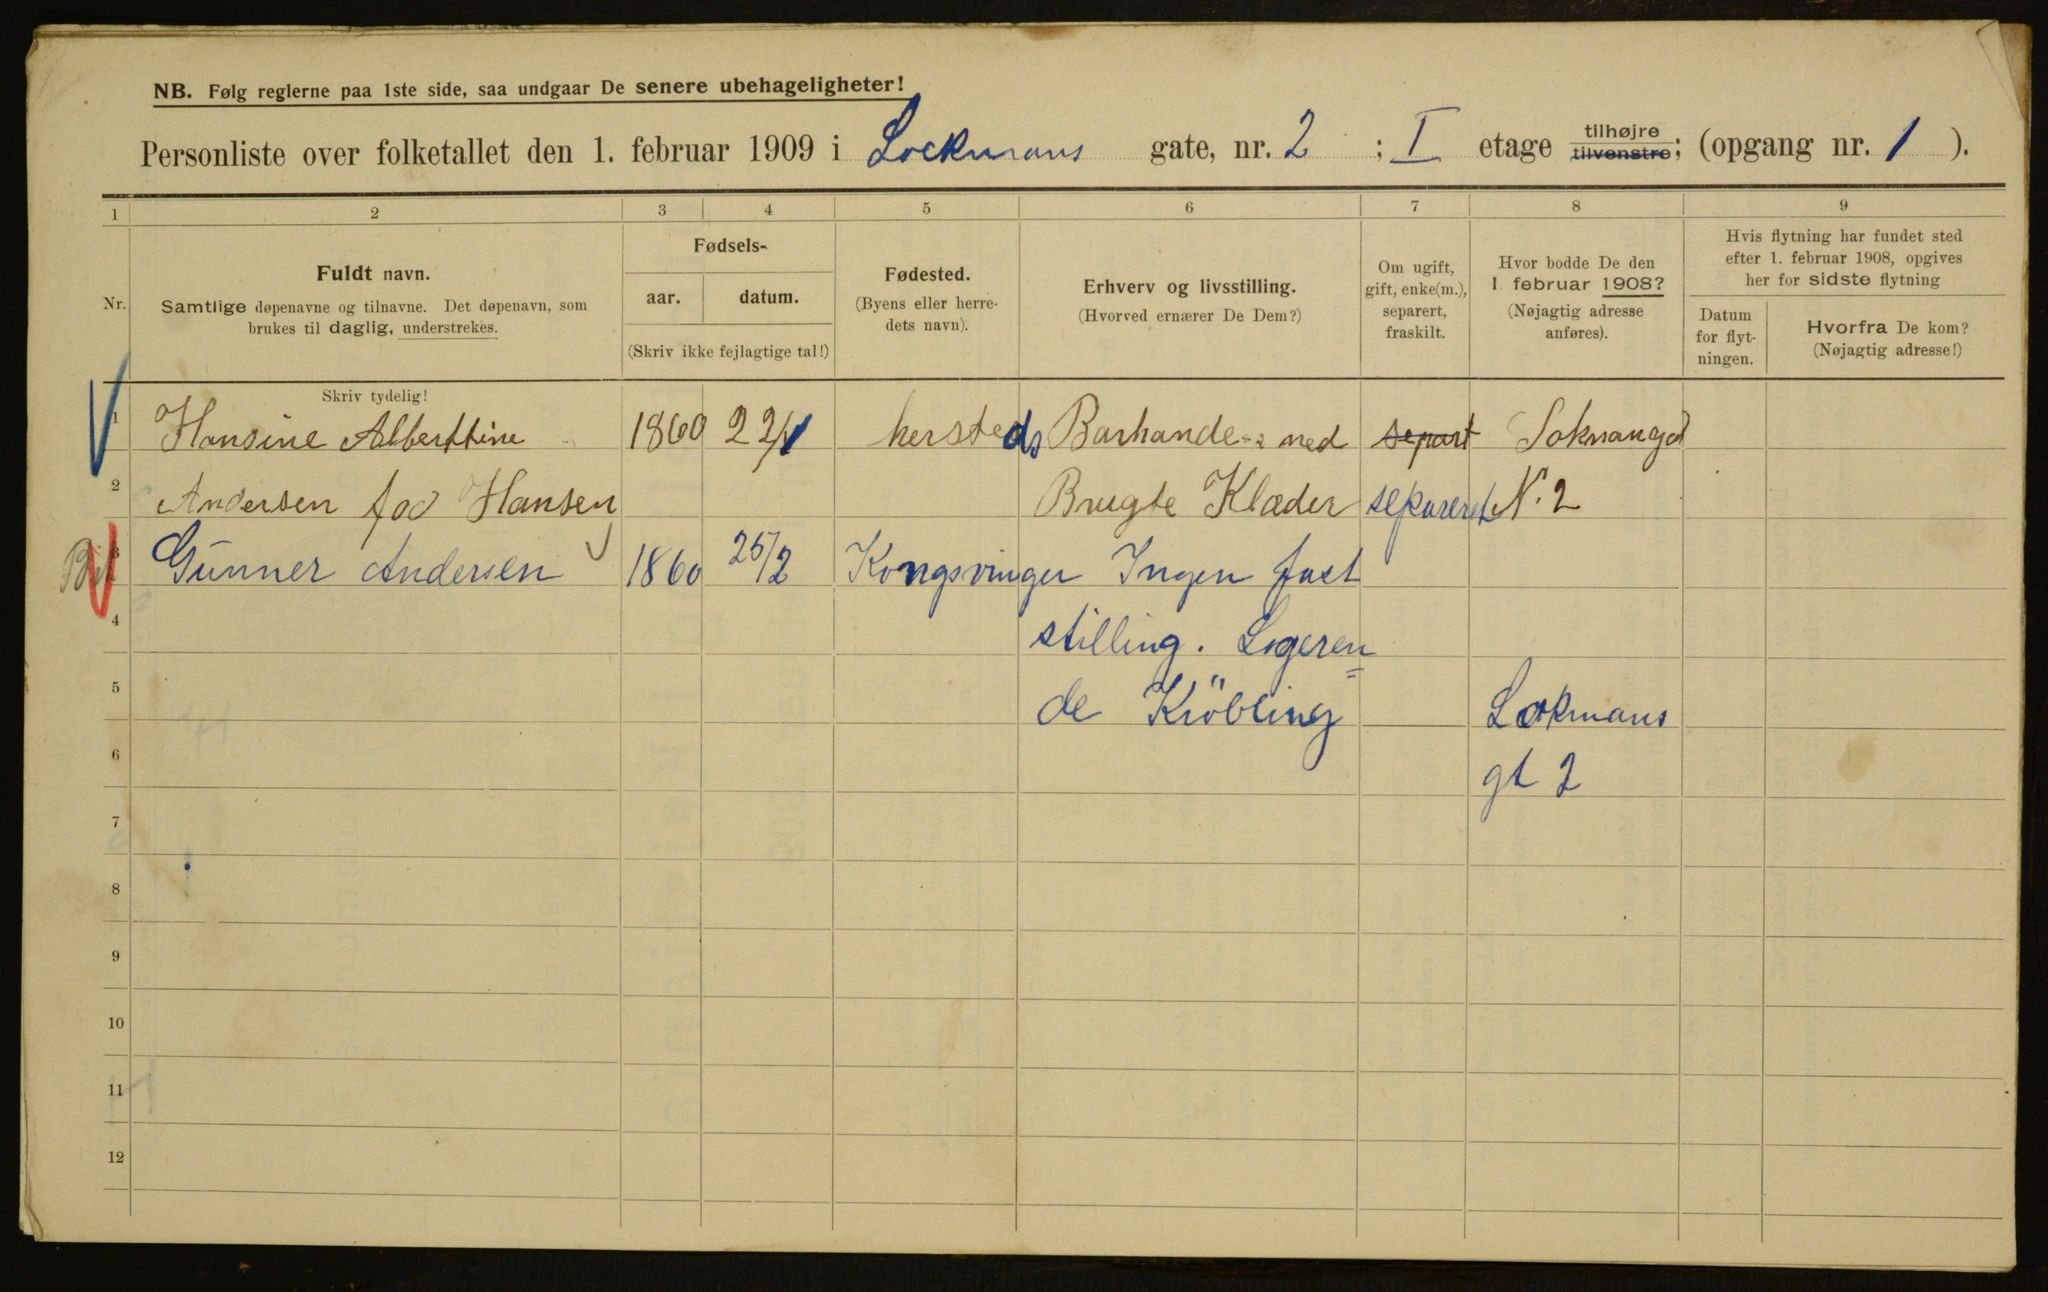 NB. Følg reglerne paa 1ste side, saa undgaar De senere ubehageligheter!
Personliste over folketallet den 1. februar 1909 i Lockmans gate, nr. 2 ; I etage tilhøjre tilvenstre; (opgang nr. 1 ).
1 2 3 4 5 6 7 8 9
Nr.
Fuldt navn.
Samtlige døpenavne og tilnavne. Det døpenavn, som
brukes til daglig, understrekes.
Fødsels-
aar. datum.
(Skriv ikke fejlagtige tal!)
Fødested.
(Byens eller herre-
dets navn).
Erhverv og livsstilling.
(Hvorved ernærer De Dem?)
Om ugift,
gift, enke(m.),
separert,
fraskilt.
Hvor bodde De den
1. februar 1908?
(Nøjagtig adresse
anføres).
Hvis flytning har fundet sted
efter 1. februar 1908, opgives
her for sidste flytning
Datum
for flyt-
ningen.
Hvorfra De kom?
(Nøjagtig adresse!)
Skriv tydelig!
1 Hansine Alberttine 1860 22/1 hersteds med separt
2 Andersen fød Hansen Brugte Klæder separeret N. 2
3 Gunner Andersen 1860 25/2 Kongsvinger Ingen fast
4 stilling. Logeren
5 de Lokmans
6 gt 2
7
8
9
10
11
12